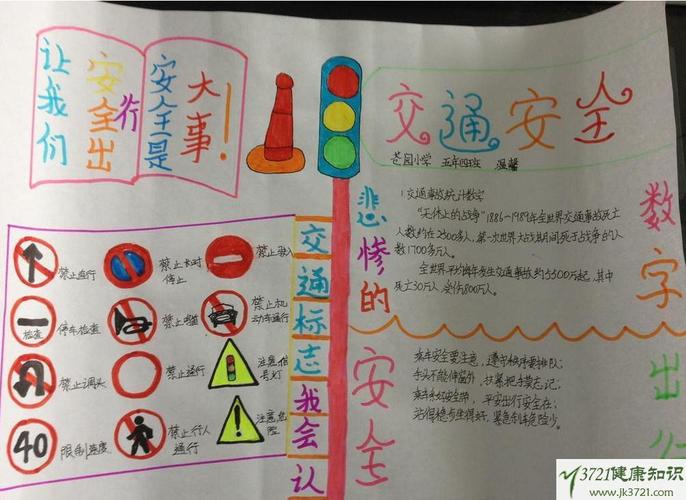 让我们
安全出
行
安全是
大事!
交通安全
苍园小学 五年四班 温馨
交通标志我会认
禁止直行
禁止长时
停止
禁止驶入
停车检查
禁止鸣笛
禁止机
动车通行
禁止调头
禁止通行
注意信
号灯
检查
40
限制速度
禁止行人
通行
注意危
险
悲惨的
数字
1.交通事故统计数字
"无休止的战争"1886-1989年全世界交通事故死亡
人数约在2500多人,第一次世界大战期间死于战争的人
数1700多万人。
全世界平均每年发生交通事故约5500万起,其中
死亡30万人,受伤800万人。
安全
出行
乘车安全要注意,遵守秩序要排队;
手头不能伸窗外,扶紧把手莫忘记;
平安出行安全在;
站得稳
3721健康知识
www.jk3721.com